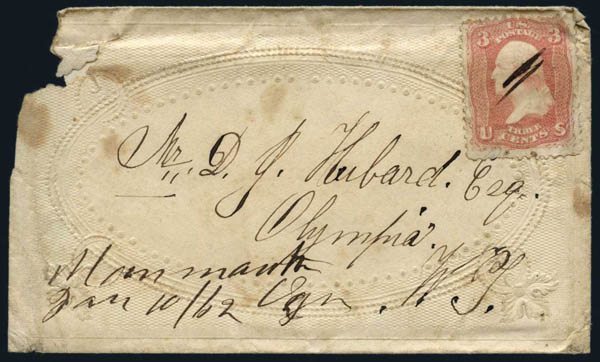 3 U.S. 3
POSTAGE
U THREE S
CENTS
Mr. D. J. Hubard. Esq.
Olympia.
W. T.
Monmauth
Jan 10/62 Ogn